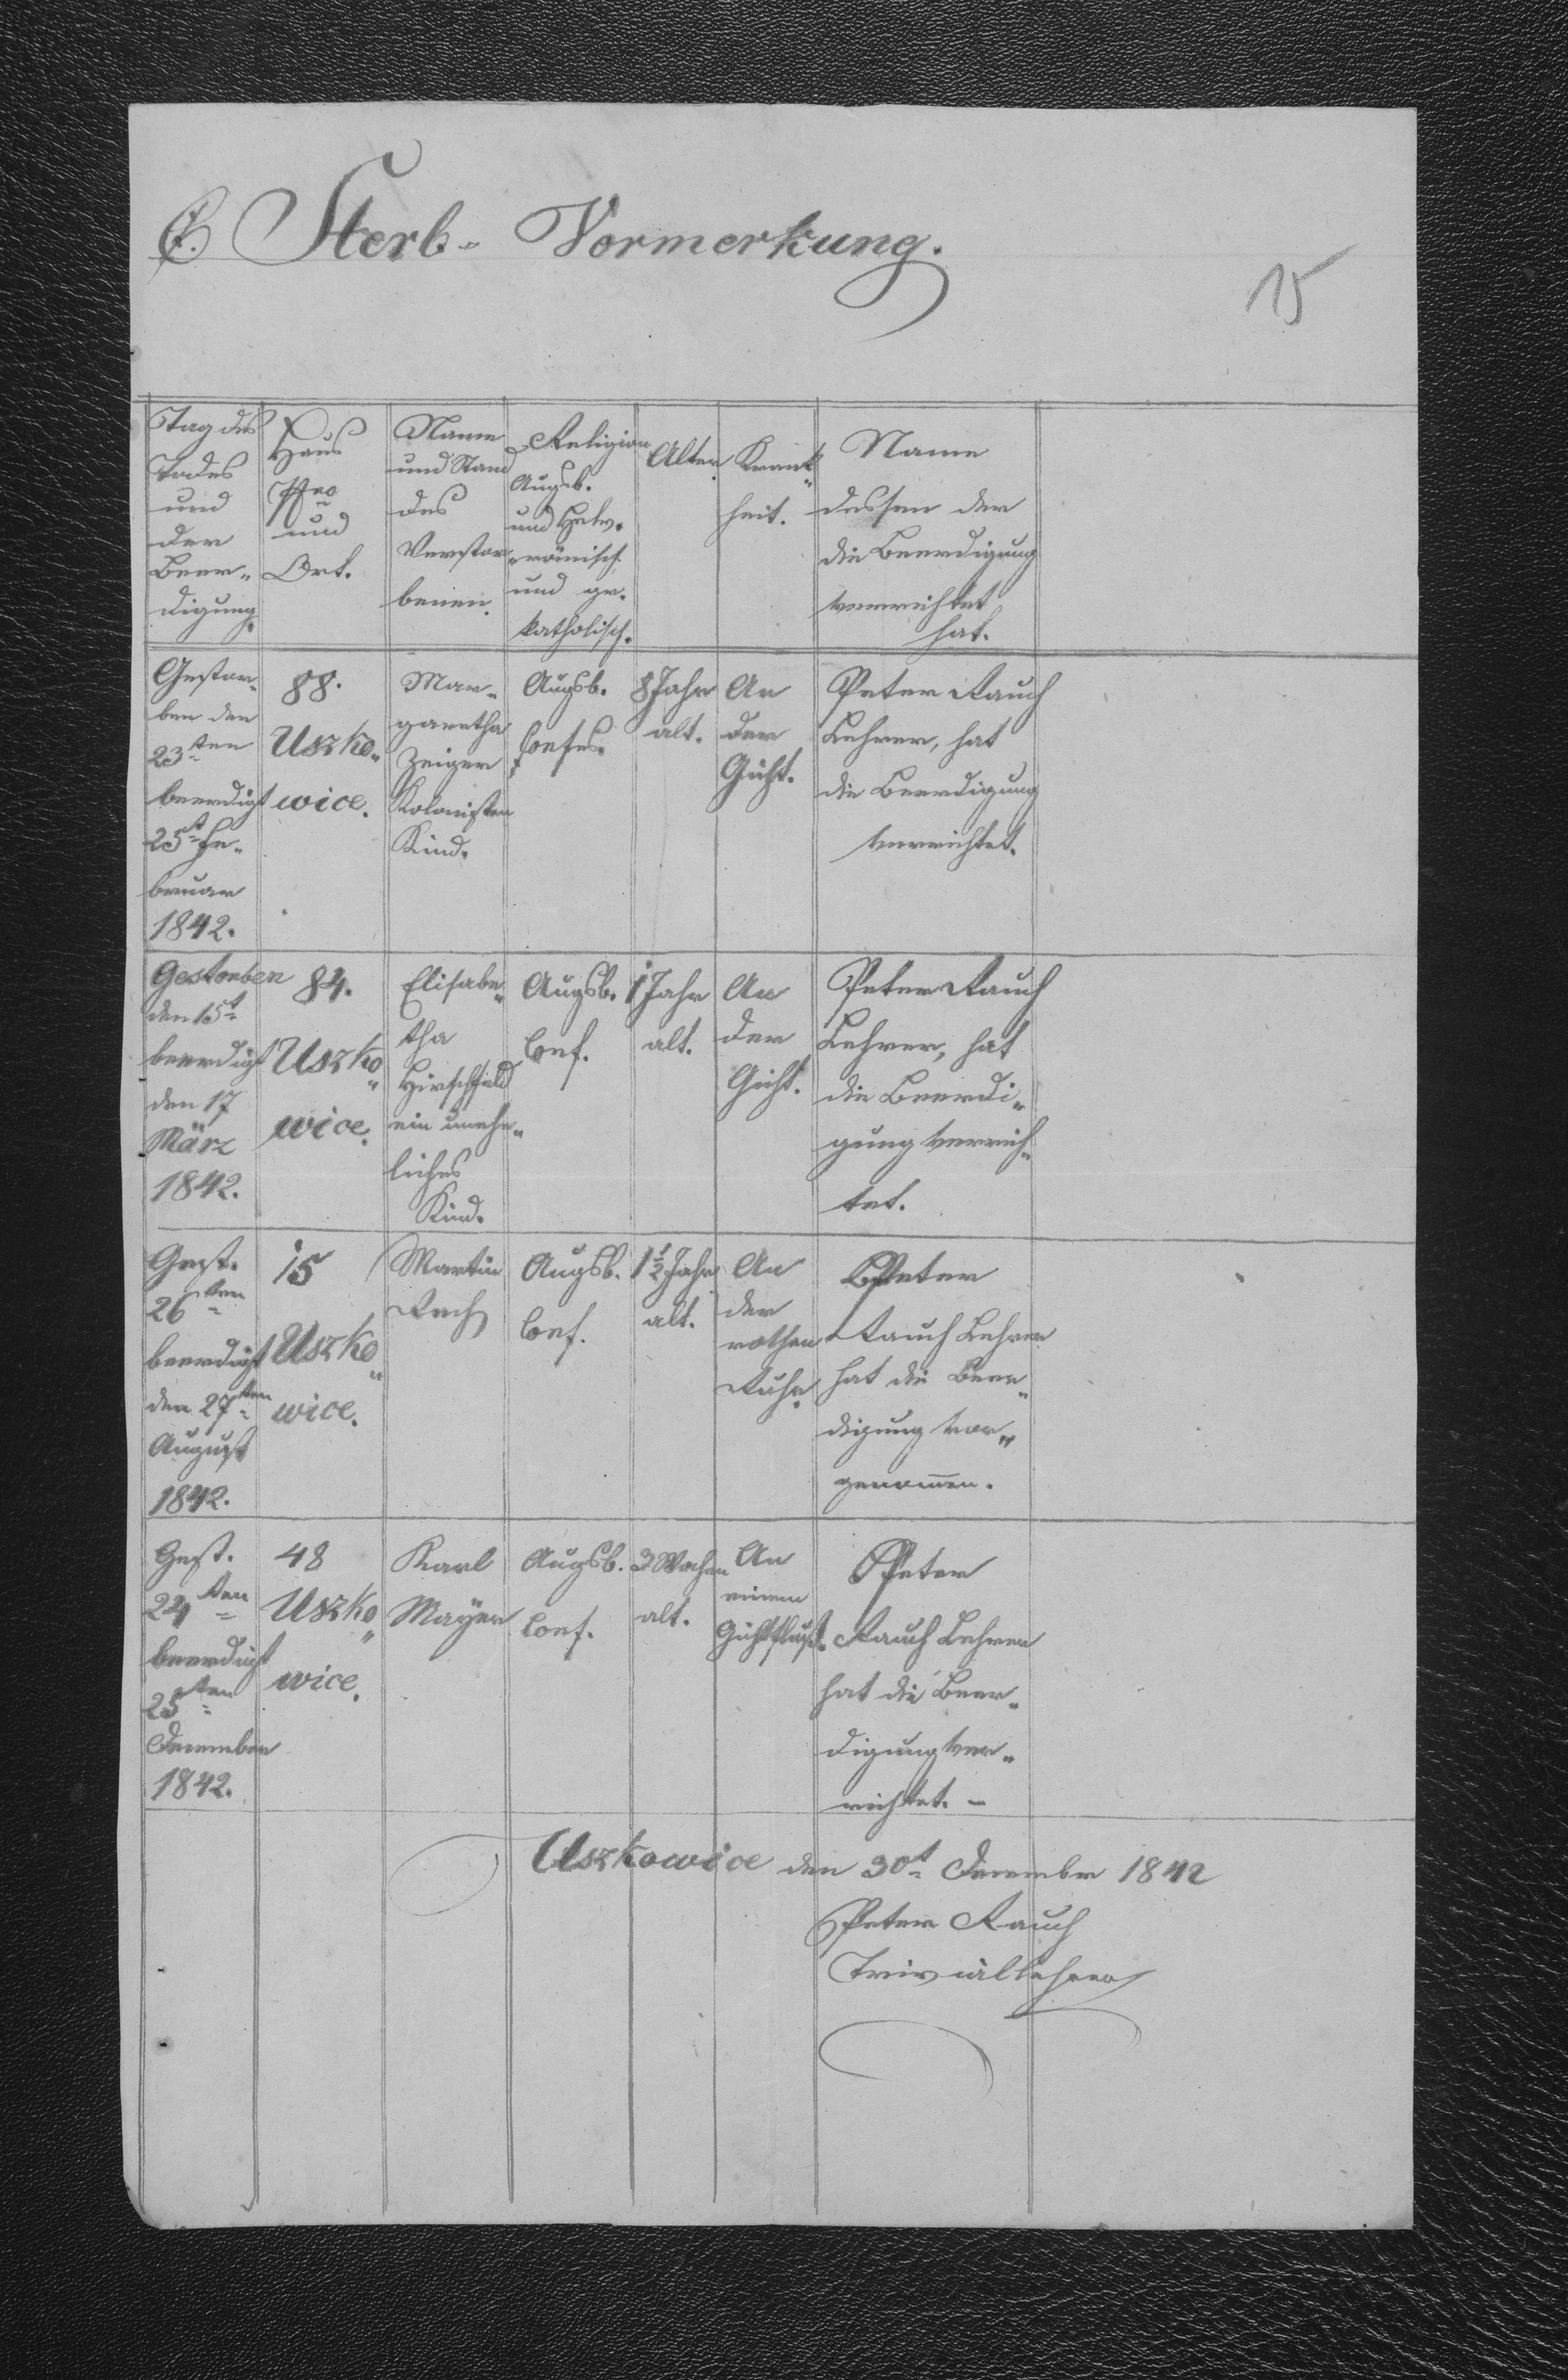 C. Sterb- Vormerkung.
15
Tag des
Todes
und
der
Beer-
digung.
Haus
Nro
und
Ort.
Name
und Stand
des
Verstor-
benen.
Religion
Augsb.
und Helv.
römisch
und gr.
katholisch.
Alter
Krank-
heit.
Name
dessen der
die Beerdigung
verrichtet
hat.
Gestor-
ben den
23ten
beerdigt
25t Fe-
bruar
1842.
88.
Uszko-
wice.
Mar-
garetha
Zeiger
Kolonisten
Kind.
Augsb.
Confes.
8 Jahr
alt.
An
der
Gicht.
Peter Rauch
Lehrer, hat
die Beerdigung
verrichtet.
Gestorben
den 15t
beerdigt
den 17
März
1842.
84.
Uszko-
wice.
Elisabe-
tha
Hirschfeld
ein unehe-
liches
Kind.
Augsb.
Conf.
1 Jahr
alt.
An
der
Gicht.
Peter Rauch
Lehrer, hat
die Beerdi-
gung verrich-
tet.
Gest.
26ten
beerdigt
den 27ten
August
1842.
15
Uszko-
wice.
Martin
Rech
Augsb.
Conf.
1½ Jahr
alt.
An
der
rothen
Ruhr.
Peter
Rauch Lehrer
hat die Beer-
digung vor-
genommen.
Gest.
24ten
beerdigt
25ten
December
1842.
48
Uszko-
wice.
Karl
Mayer
Augsb.
Conf.
3 Wochen
alt.
An
einem
Gichtfluß.
Peter
Rauch Lehrer
hat die Beer-
digung ver-
richtet. -
Uszkowice den 30t December 1842
Peter Rauch
Triviallehrer